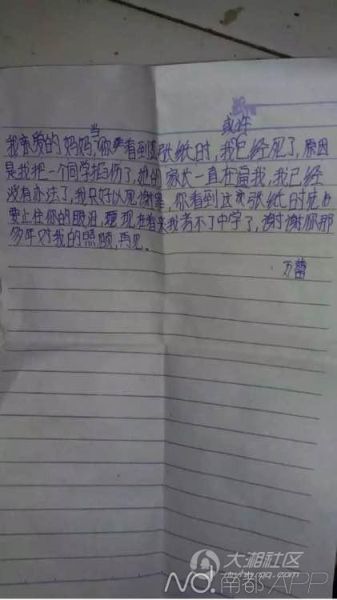 或许
我亲爱的妈妈当你看到这张纸时,我已经死了,原因
是我把一个同学指伤了,她的家长一直在逼我,我已经
没有办法了,我只好以死谢罪。你看到这张纸时
要止住你的眼泪,现在看来我考不了中学了,谢谢你那
多年对我的照顾,再见。
万蕾
大湘社区
NO.南都APP